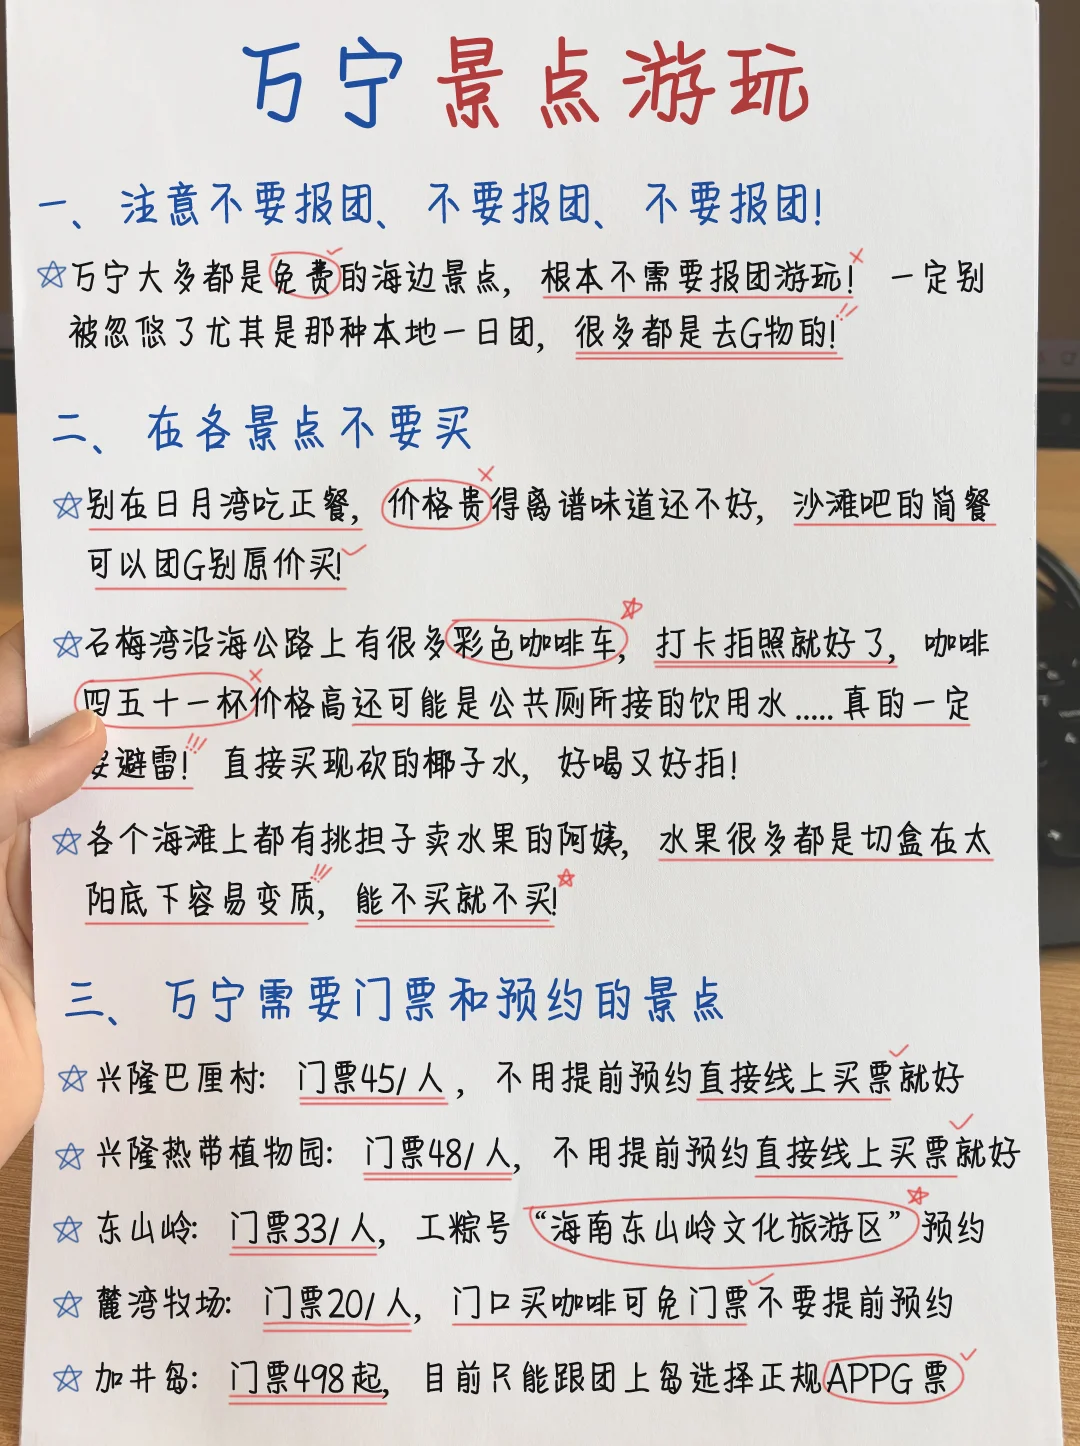 万宁景点游玩
一、注意不要报团、不要报团、不要报团!
万宁大多都是免费的海边景点, 根本不需要报团游玩! 一定别
被忽悠了尤其是那种本地一日团, 很多都是去G物的!
二、在各景点不要买
别在日月湾吃正餐, 价格贵得离谱味道还不好, 沙滩吧的简餐
可以团G别原价买!
石梅湾沿海公路上有很多彩色咖啡车, 打卡拍照就好了, 咖啡
四五十一杯价格高还可能是公共厕所接的饮用水.....真的一定
要避雷! 直接买现砍的椰子水, 好喝又好拍!
各个海滩上都有挑担子卖水果的阿姨, 水果很多都是切盒在太
阳底下容易变质, 能不买就不买!
三、万宁需要门票和预约的景点
兴隆巴厘村: 门票45/人, 不用提前预约直接线上买票就好
兴隆热带植物园: 门票48/人, 不用提前预约直接线上买票就好
东山岭: 门票33/人, 工粽号“海南东山岭文化旅游区”预约
麓湾牧场: 门票20/人, 门口买咖啡可免门票不要提前预约
加井岛: 门票498起, 目前只能跟团上岛选择正规APPG票